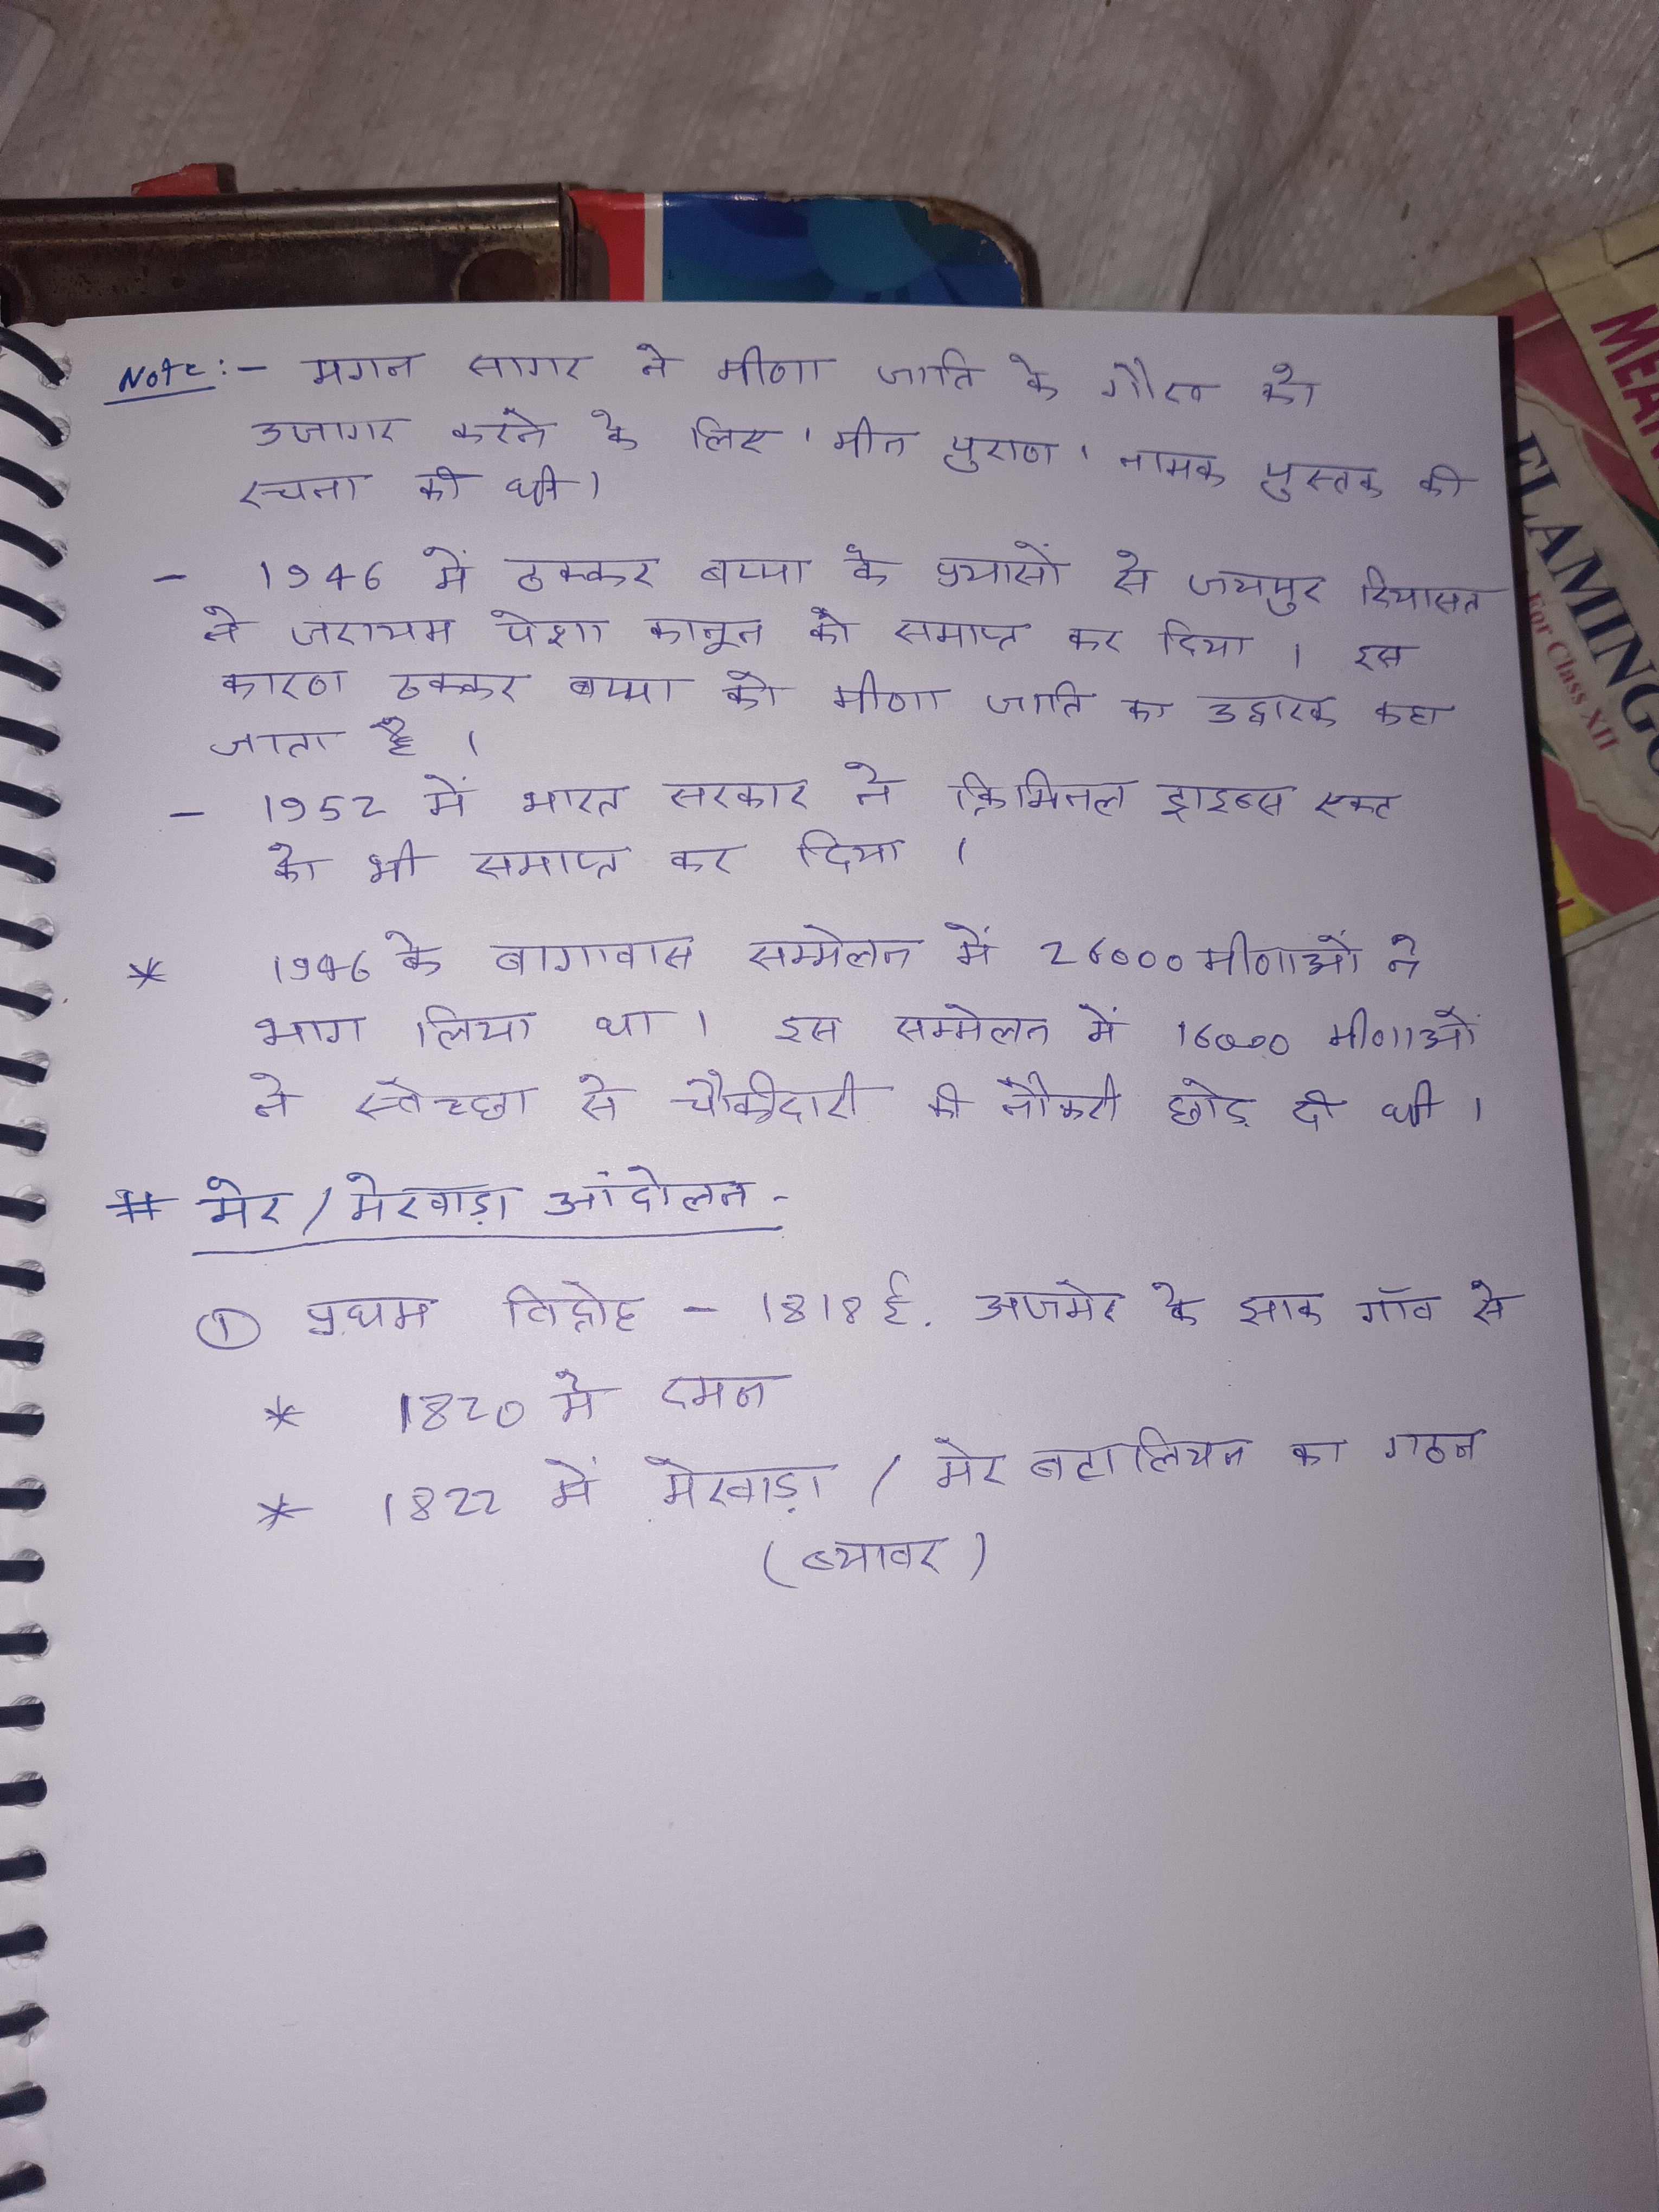 Note:- मगन सागर ने मीणा जाति के गौरव को
उजागर करने के लिए 'मीन पुराण' नामक पुस्तक की
रचना की थी।
- 1946 में ठक्कर बप्पा के प्रयासों से जयपुर रियासत
ने जरायम पेशा कानून को समाप्त कर दिया । इस
कारण ठक्कर बप्पा को मीणा जाति का उद्वारक कहा
जाता है ।
- 1952 में भारत सरकार ने क्रिमिनल ट्राइब्स एक्ट
को भी समाप्त कर दिया ।
* 1946 के बागावास सम्मेलन में 26000 मीणाओं ने
भाग लिया था । इस सम्मेलन में 16000 मीणाओं
ने स्वेच्छा से चौकीदारी की नौकरी छोड़ दी थी ।
# मेर / मेरवाड़ा आंदोलन -
① प्रथम विद्रोह - 1818 ई. अजमेर के झाक गाँव से
* 1820 में दमन
* 1822 में मेरवाड़ा / मेर बटालियन का गठन
(ब्यावर)
MEAN
FLAMINGO
For Class XII